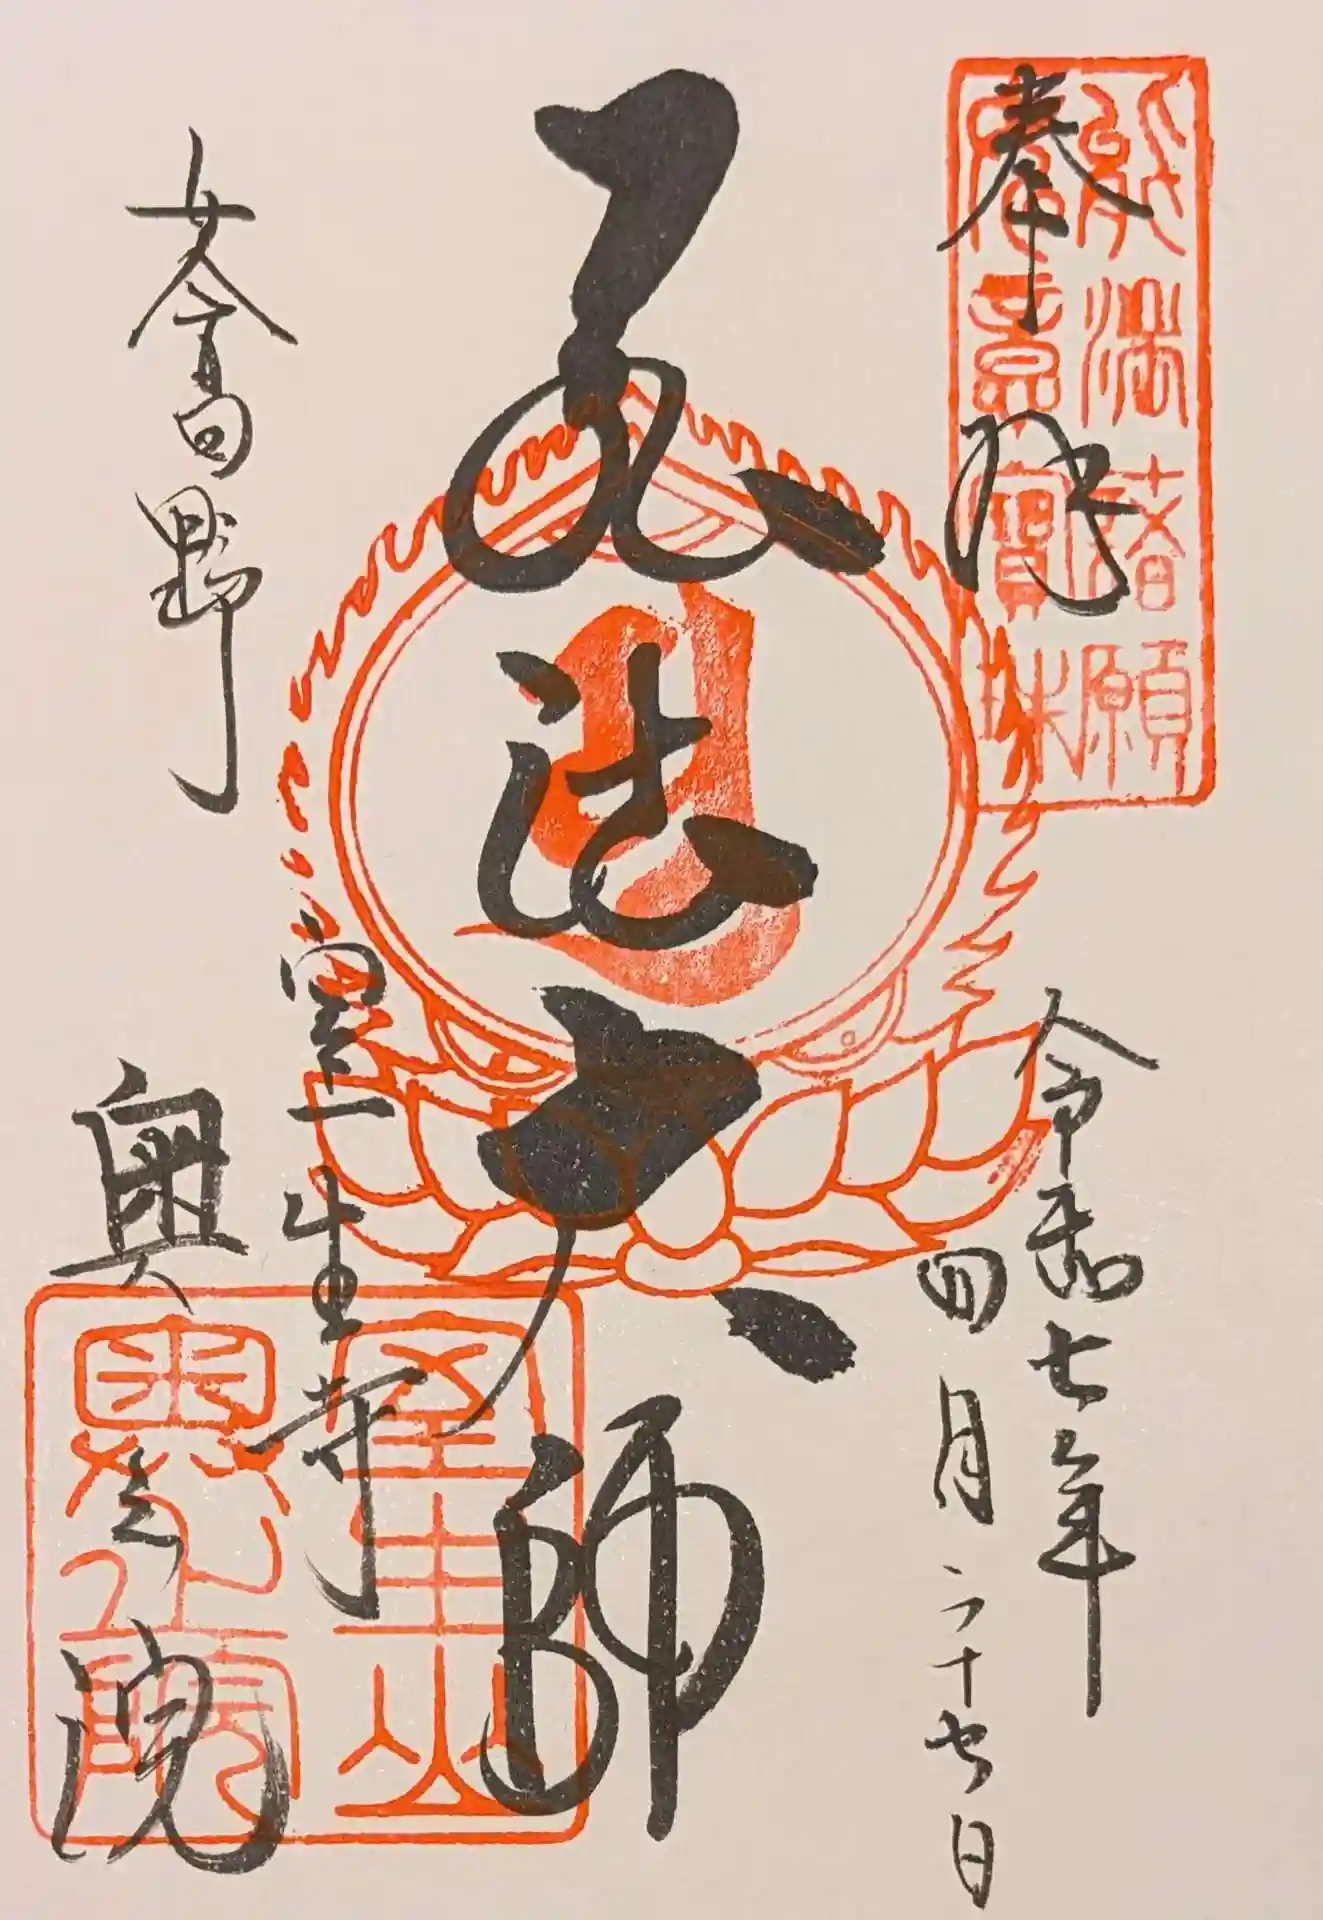 能満諸願
如意寳珠
奉拝
令和七年
四月二十七日
弘法大師
女人高野
室生寺
奥之院
室生山
奥之院